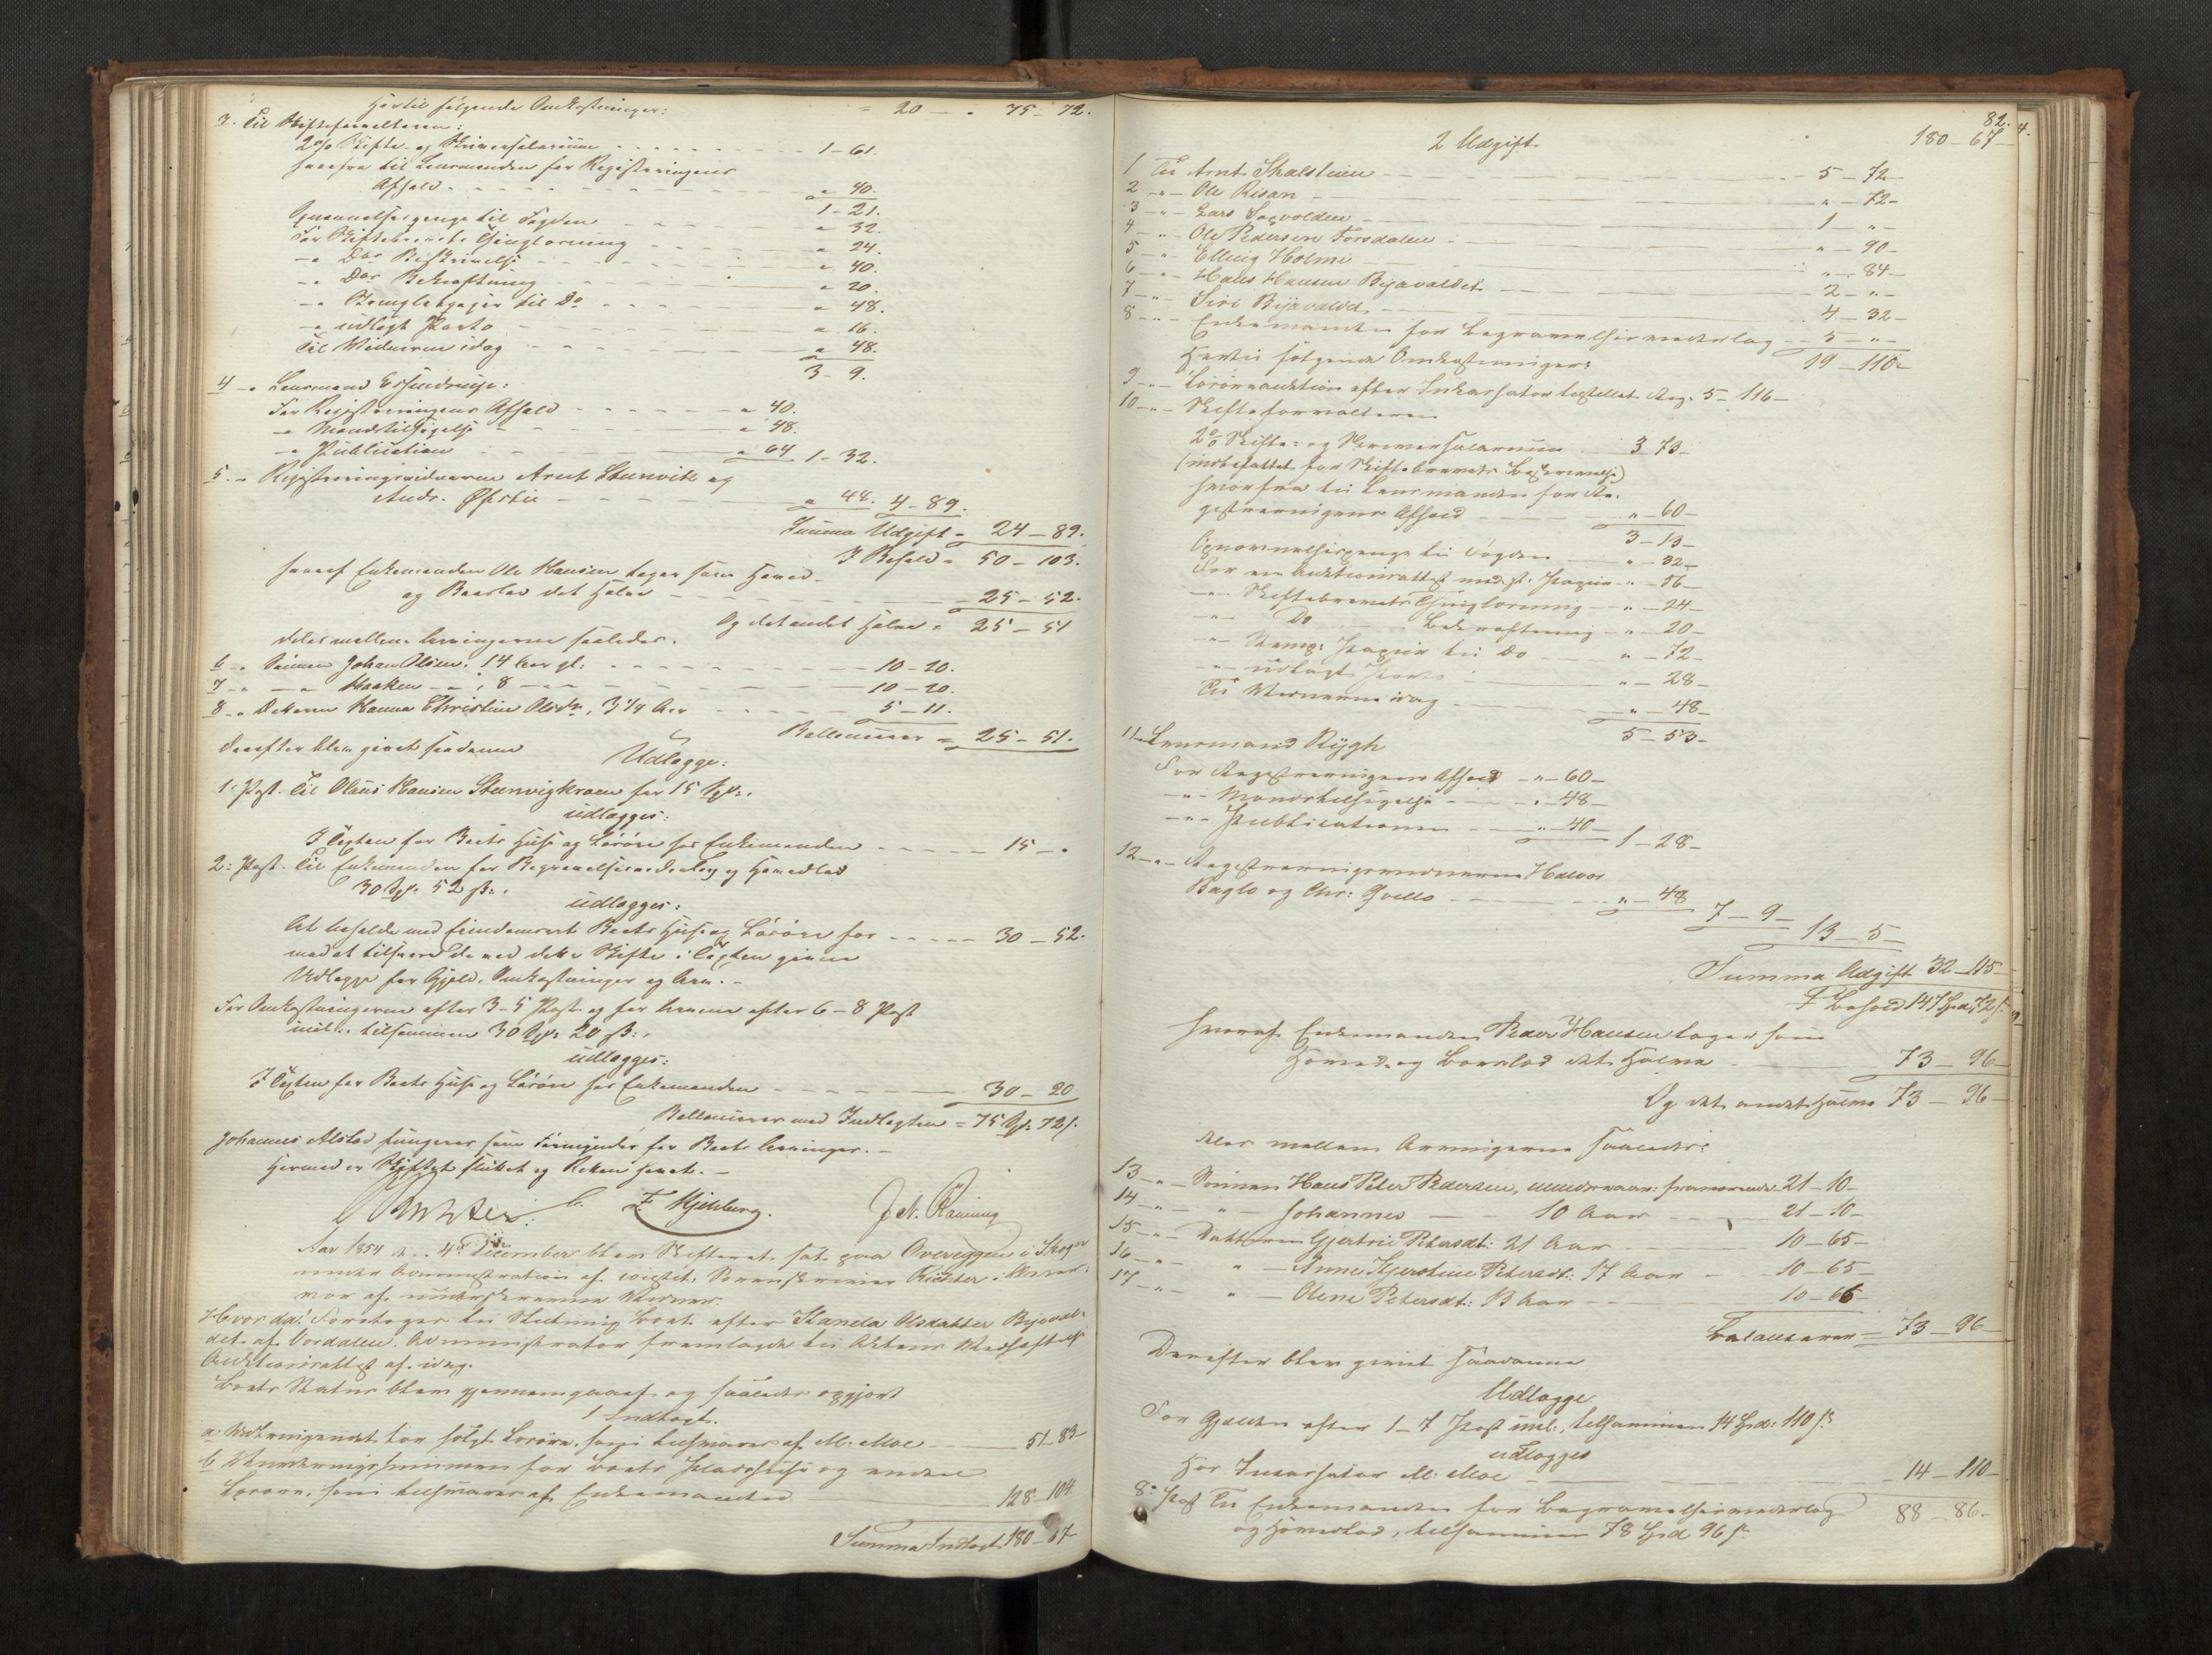 Hertil følgende Omkostninger: = 20 — " 75 – 72.
3. Til Skifteforvalteren:
2% Skifte- og Skriversalarium 1 – 61.
herfra til Lensmanden for Registreringens
Afhold " 40.
1 – 21.
Opnævnelsespenge til Fogden " 32.
For Skiftebrevets Thinglæsning " 24.
–" Dos Beskrivelse " 40.
–" Dos Bekræftning " 20.
–" Stemplet papir til Do " 48.
–" udlagt Porto " 16.
Til Vidnerne idag " 48.
3 – 9.
4 –" Lensmand
For Registreringens Afhold " 40.
–" Mændstilsigelse " 48.
–" Publication " 64 1 – 32.
5. –" Registreringsvidnerne Arnt Stenvik og
Andr. Øfstie " 48. 4 – 89.
Summa Udgift = 24 – 89.
I Behold = 50 – 103.
hvoraf Enkemanden Ole Hansen tager som Hoved-
og Boeslod det Halve 25 – 52.
Og det andet Halve = 25 – 51
deles mellem Arvingerne saaledes.
6 –" Sønnen Johan Olsen. 14 Aar gl: 10 – 20.
7 –" –" Haaken –", 8 –" 10 – 20.
8 –" Datteren Hanna Christine Olsdr, 3 1/4 Aar 5 – 11.
Ballancerer = 25 – 51.
Derefter blev givet saadanne
Udlægge:
1. Post. Til Olaus Hansen Steenvigkraen for 15 Spd.
udlægges:
I Tægten for Boets Huse og Løsøre hos Enkemanden 15 – "
2: Post. Til Enkemanden for Begravelsesvederlag og Hovedlod
30 Spd: 52 s:.
udlægges:
At beholde med Boets Huse og Løsøre for 30 – 52.
mod at tilsvare de ved dette Skifte i Tægten givne
Udlægge for Gjeld, Omkostninger og Arv. –
For Omkostningerne efter 3 – 5 Post og for Arvene efter 6 – 8 Post
incl:. tilsammen 30 Spd. 20 s:.
udlægges:
I Tægten for Boets Huse og Løsøre hos Enkemanden 30 – 20
Ballancerer med Indtægten = 75 Spd. 72 s.
Johannes Alstad fungerer som Formynder for Boets Arvinger. –
Hermed er Skiftet sluttet og Retten hævet. –
Richter.
Aar 1854 d. 4de December blev Skifteret sat paa Overeggen i
under Administration af constit. Sorenskriver Richter i
vær af undertegnede Vidner.
Hvor da: Foretoges til Slutning Boet efter Kanela Olsdatter Bjavaldet
af Værdalen. Administrator fremlagde til Aktens Vedhæftelse
Auktionsattest af idag.
Boets Status blev gjennemgaaet og saaledes opgjort
1 Indtægt.
a Udbringendet for solgt Løsøre, som tilsvares af M. Moe 51 – 83
b Vurderingssummen for Boets Pladshuse og andet
Løsøre, som tilsvares af Enkemanden 128 – 104
Summa Indtægt 180 – 67
82.
4.
2 Udgift. 180 – 67
1 Til Arnt Skalstuen 5 – 72 –
2 –" – Ole Risan " – 72 –
3 –" – Lars Sagvolden 1 – " –
4 –" – Ole Pedersen Forsdalen " – 90 –
5 –" – Elling Holme " – 84 –
6 –" – Hans Hansen Bjavaldet 2 – " –
7 –" – Siri Bjavaldet 4 – 32 –
8 –" – Enkemanden for Begravelsesvederlag 5 – " –
19 – 110 –
Hertil følgende Omkostninger:
9 –" – Løsøreauktion efter Inkassator tilstillet Reg. 5 – 116 –
10 –" – Skifteforvalteren
2% Skifte- og Skriversalarium 3 – 73 –
(indbefattet for Skiftebrevets Beskrivelse)
hvorfra til Lensmanden for Re-
gistreringens Afhold " – 60 –
3 – 13 –
Opnævnelsespenge til Fogden " – 32 –
For en Auktionsattest med st. Papir " – 56 –
–"– Skiftebrevets Thinglæsning " – 24 –
–"– Do Bekræftning " – 20 –
–"– Stemp: Papir til Do " – 72 –
–"– udlagt Porto " – 28 –
Til Vidnerne idag " – 48 –
5 – 53 –
11 – Lensmand Rygh
For Registreringens Afhold " – 60 –
–"– Mandstilsigelse " – 48 –
–"– Publicationen " – 40 – 1 – 28 –
12 –" – Registreringsvidnerne Halvor
Baglo og Chr: Qvello " – 48
7 – 9 –
13 – 5 –
Summa Udgift 32 – 115 –
I Behold 147 Spd. 72 s
hvoraf Enkemanden Peder Hansen tager som
Hoved- og Boeslod det Halve 73 – 96 –
Og det andet Halve 73 – 96 –
deles mellem Arvingerne saaledes:
13 –" – Sønnen Hans Peter Pedersen, mindreaar: fraværende 21 – 10 –
14 –" – " – Johannes – 10 Aar 21 – 10 –
15 –" – Datteren Gjertrie Petersdt: 21 Aar 10 – 65 –
16 –" – " – Anne Kjerstine Petersdt: 17 Aar 10 – 65 –
17 –" – " – Olene Petersdt: 13 Aar 10 – 66
Balancerer = 73 – 96
Derefter blev givet saadanne
Udlægge
For Gjælden efter 1 – 7 Post incl:, tilsammen 14 Spd: 110 s
udlægges
Hos Inkassator M. Moe 14 – 110 –
8de Post Til Enkemanden for Begravelsesvederlag
og Hovedlod, tilsammen 78 Spd 96 s 88 – 86 –